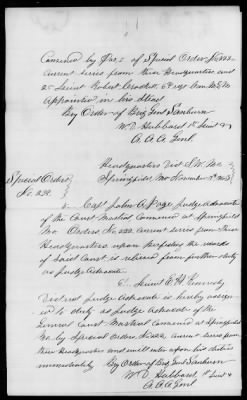 Convened by Par. 1 of Special Order No. 222
current series from these Headquarters and
2d Lieut Robert Crockett, 6th regt Cav. M.S.M.
appointed in his stead
By Order of Brig Genl Sanborn
W. D. Hubbard 1st Lieut &
A.A.A. Genl.
Headquarters Dist S.W. Mo
Springfield Mo November 1863
Special Orders
No.
Capt John A. Judge Advocate
of the Court Martial Convened at Springfield
Mo Orders No. 222 current series from these
Headquarters upon the
of said Court is relieved from further duty
as Judge Advocate.
2. Lieut E. H.
District Judge Advocate is hereby assigned
to duty as Judge Advocate of the
General Court Martial Convened at Springfield
Mo by Special Orders No 222 current series from
these Headquarters and will enter upon his duties
immediately By Order of Brig Genl Sanborn
W. D. Hubbard 1st Lieut &
A.A.A. Genl